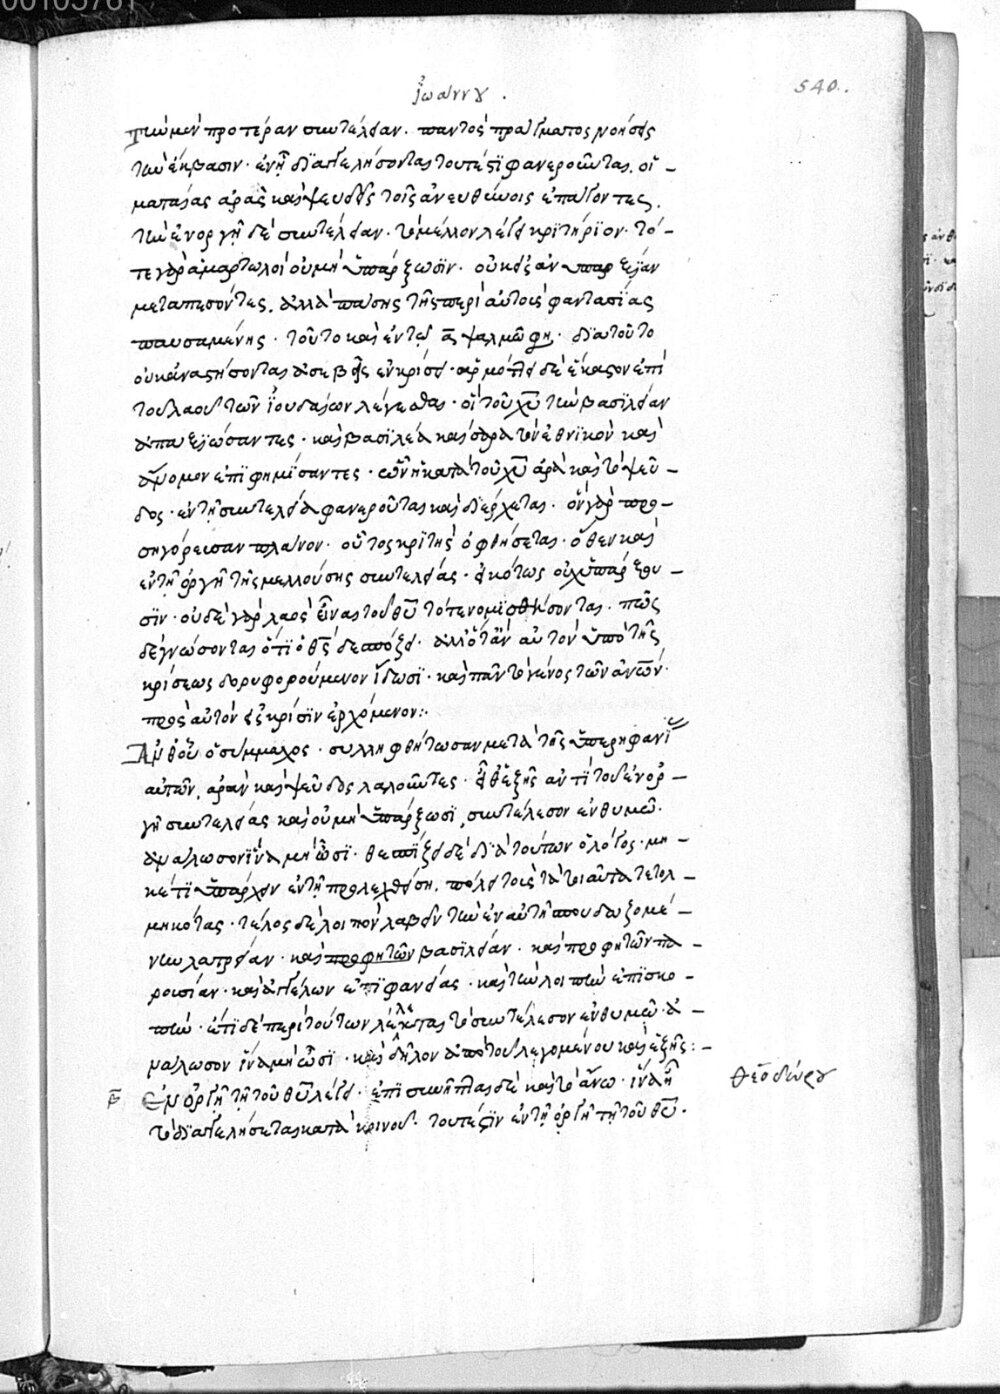 00105761
ἰωάννου.
540.
τὴν μὲν προτέραν συντέλειαν. παντὸς πράγματος νοήσεις
τὴν ἔκβασιν· ἐν ᾗ διαγγελήσονται τουτέστι φανεροῦνται. οἱ
ματαίας ἀρὰς καὶ ψευδεῖς τοῖς ἀνευθύνοις ἐπάγοντες.
τὴν ἐν ὀργῇ δὲ συντέλειαν. τὸ μέλλον λέγει κριτήριον· τό-
τε γὰρ ἁμαρτωλοὶ οὐ μὴ ὑπάρξωσιν· οὐκ εἰς ἀνυπαρξίαν
μεταπεσόντες. ἀλλὰ πάσης τῆς περὶ αὐτοὺς φαντασίας
παυσαμένης· τοῦτο καὶ ἐν τῷ α ψαλμῷ φη· διὰ τοῦτο
οὐκ ἀναστήσονται ἀσεβεῖς ἐν κρίσει· ἁρμόττει δὲ ἕκαστον ἐπὶ
τοῦ λαοῦ τῶν ἰουδαίων λέγεσθαι· οἱ τοῦ χυ τὴν βασιλείαν
ἀπαξιώσαντες· καὶ βασιλέα καίσαρα τὸν ἐθνικὸν καὶ
ἄνομον ἐπιφημίσαντες· ὧν ἡ κατὰ τοῦ χυ ἀρὰ καὶ τὸ ψεῦ-
δος· ἐν τῇ συντελείᾳ φανεροῦται καὶ διέρχεται. ὃν γὰρ προ-
σηγόρευσαν πλάνον· οὗτος κριτὴς ὀφθήσεται· ὅθεν καὶ
ἐν τῇ ὀργῇ τῆς μελλούσης συντελείας· εἰκότως οὐχ ὑπάρξου-
σιν· οὐδὲ γὰρ λαὸς εἶναι τοῦ θυ τότε νομισθήσονται· πῶς
δὲ γνώσονται ὅτι ὁ θς δεσπόζει· ἀλλ' ὅταν αὐτὸν ὑπὸ τῆς
κρίσεως δορυφορούμενον ἴδωσι· καὶ πᾶν τὸ γένος τῶν ἀνων·
πρὸς αὐτὸν εἰς κρίσιν ἐρχόμενον:
Ἀνθ' οὗ ὁ σύμμαχος· συλληφθήτωσαν μετὰ τῆς ὑπερηφανί
αὐτῶν. ἀρὰν καὶ ψεῦδος λαλοῦντες· ἑξῆς ἀντὶ τοῦ ἐν ὀρ-
γῇ συντελείας καὶ οὐ μὴ ὑπάρξωσι, συντέλεσον ἐν θυμῷ·
ἀνάλωσον ἵνα μὴ ὦσι· θεσπίζει δὲ διὰ τούτων ὁ λόγος· μη-
κέτι ὑπάρχειν ἐν τῇ προλεχθείσῃ. πόλει τοὺς τὰ τοιαῦτα τετολ-
μηκότας· τέλος δὲ λοιπὸν λαβεῖν τὴν ἐν αὐτῇ σπουδαζομέ-
νην λατρείαν· καὶ προφητῶν βασιλείαν· καὶ προφητῶν πα-
ρουσίαν· καὶ ἀγγέλων ἐπιφανείας· καὶ τὴν λοιπὴν ἐπισκο-
πήν· ἔτι δὲ περὶ τούτων λέλεκται τὸ συντέλεσον ἐν θυμῷ· ἀ-
νάλωσον ἵνα μὴ ὦσι· καὶ δῆλον ἀπὸ τοῦ λεγομένου καὶ ἑξῆς:-
Ἐν ὀργῇ τῇ τοῦ θυ λέγει· ἐπισυνῆπται δὲ καὶ τὸ ἄνω· ἵν' ᾖ
θεοδώρου
τὸ διαγγελήσεται κατὰ κοινοῦ· τουτέστιν ἐν τῇ ὀργῇ τῇ τοῦ θυ·